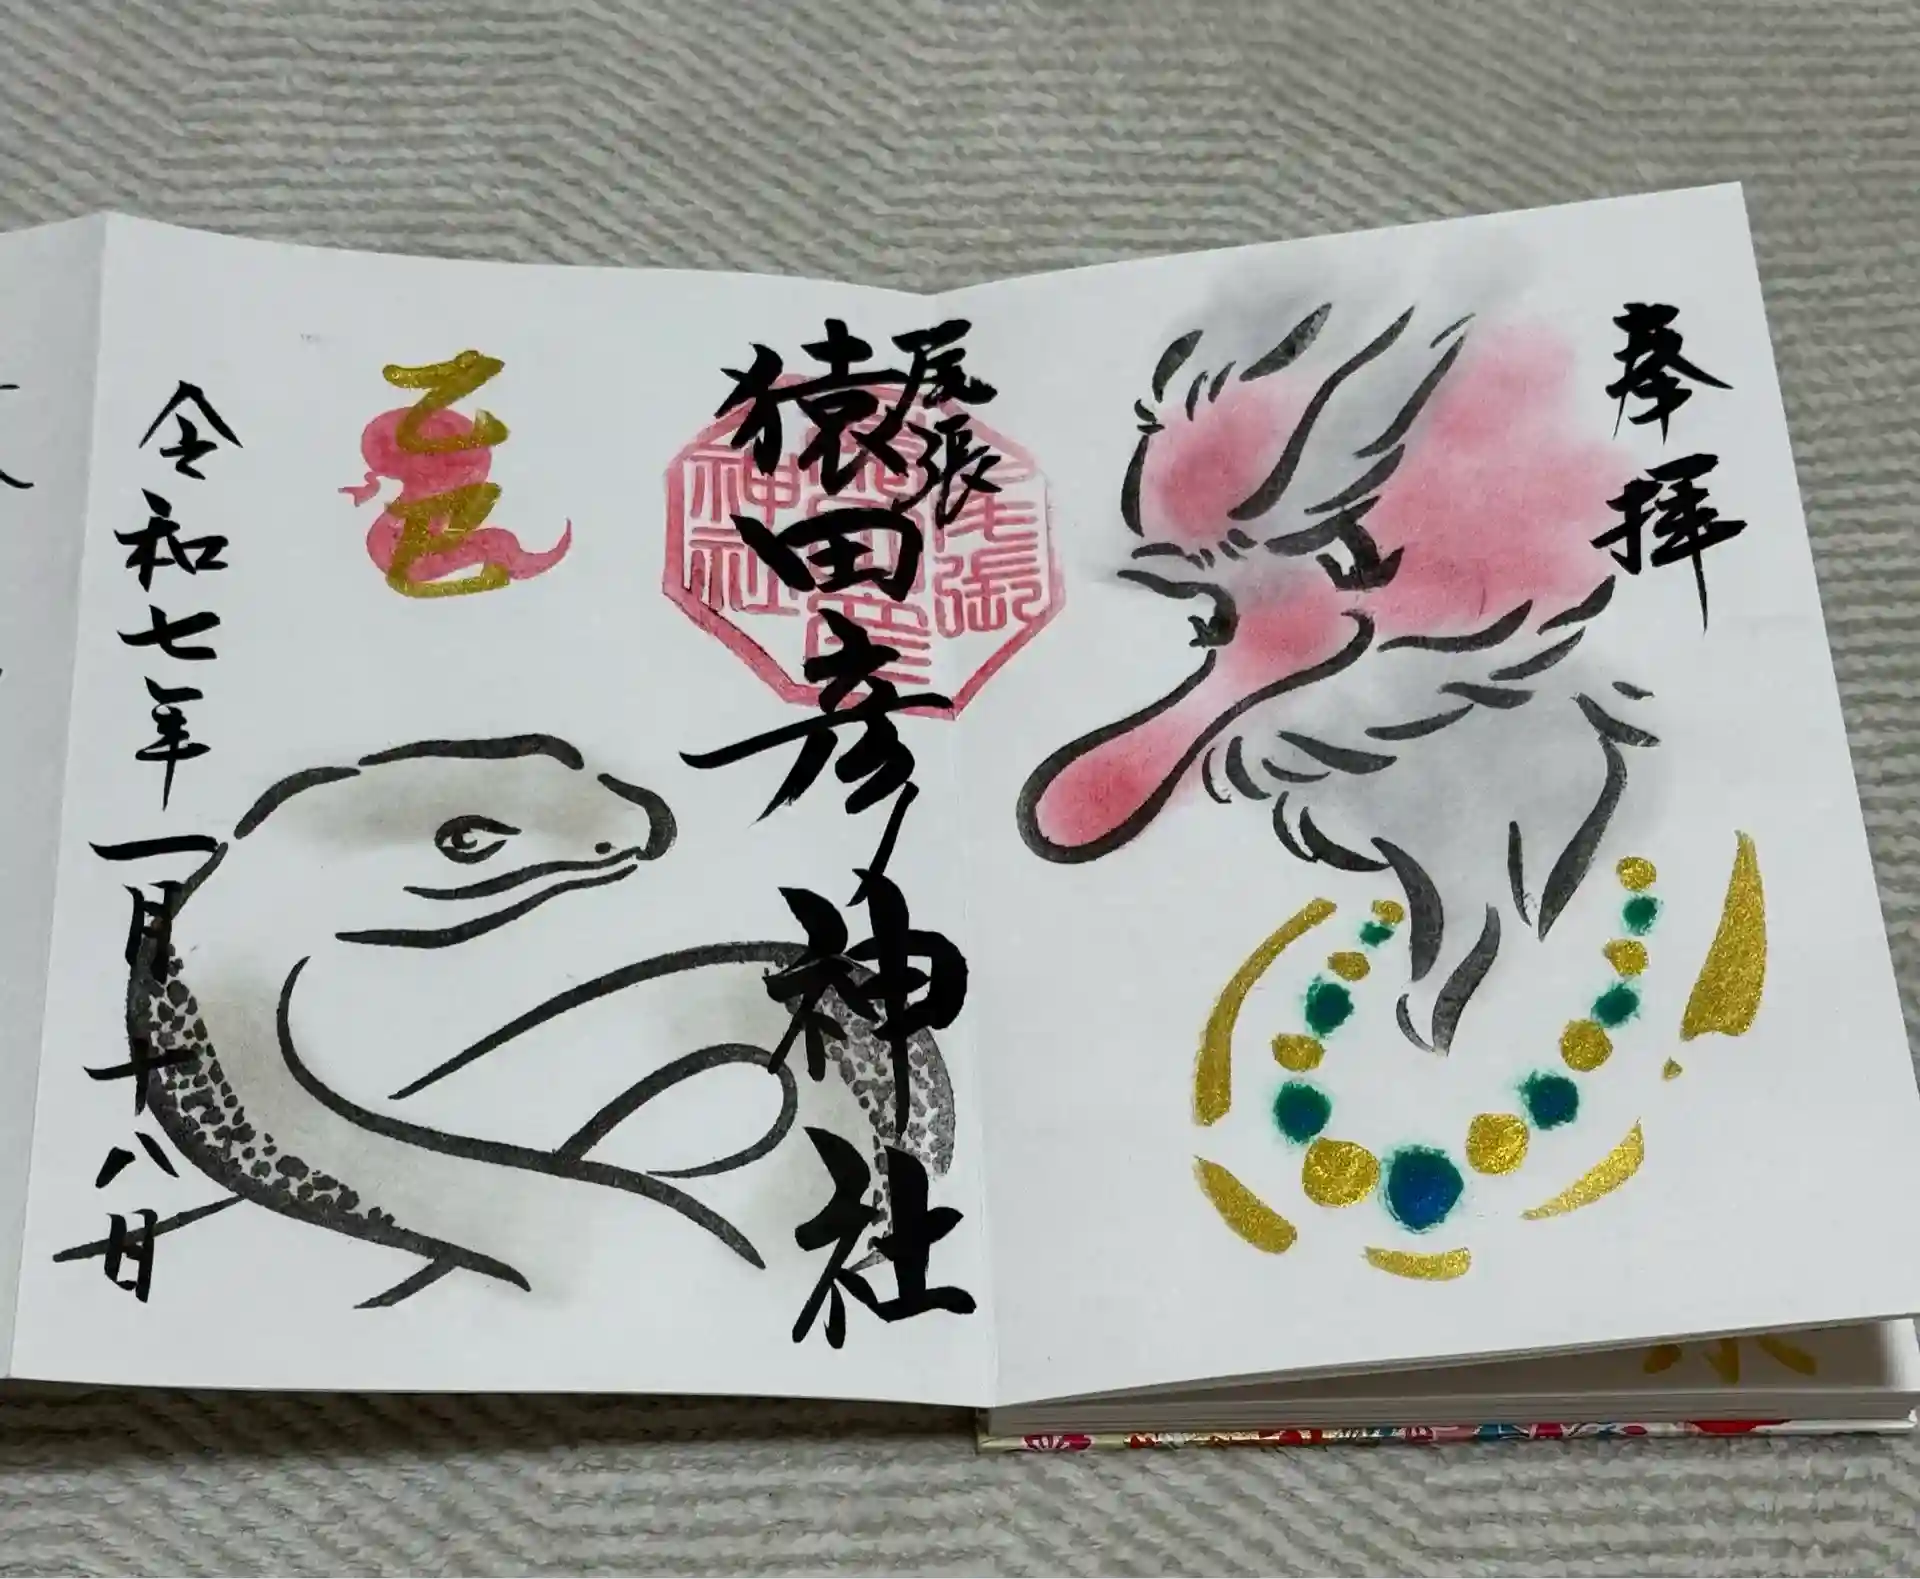 奉拝
尾張
猿田彦神社
尾張
猿田彦
神社
乙巳
令和七年一月十八日